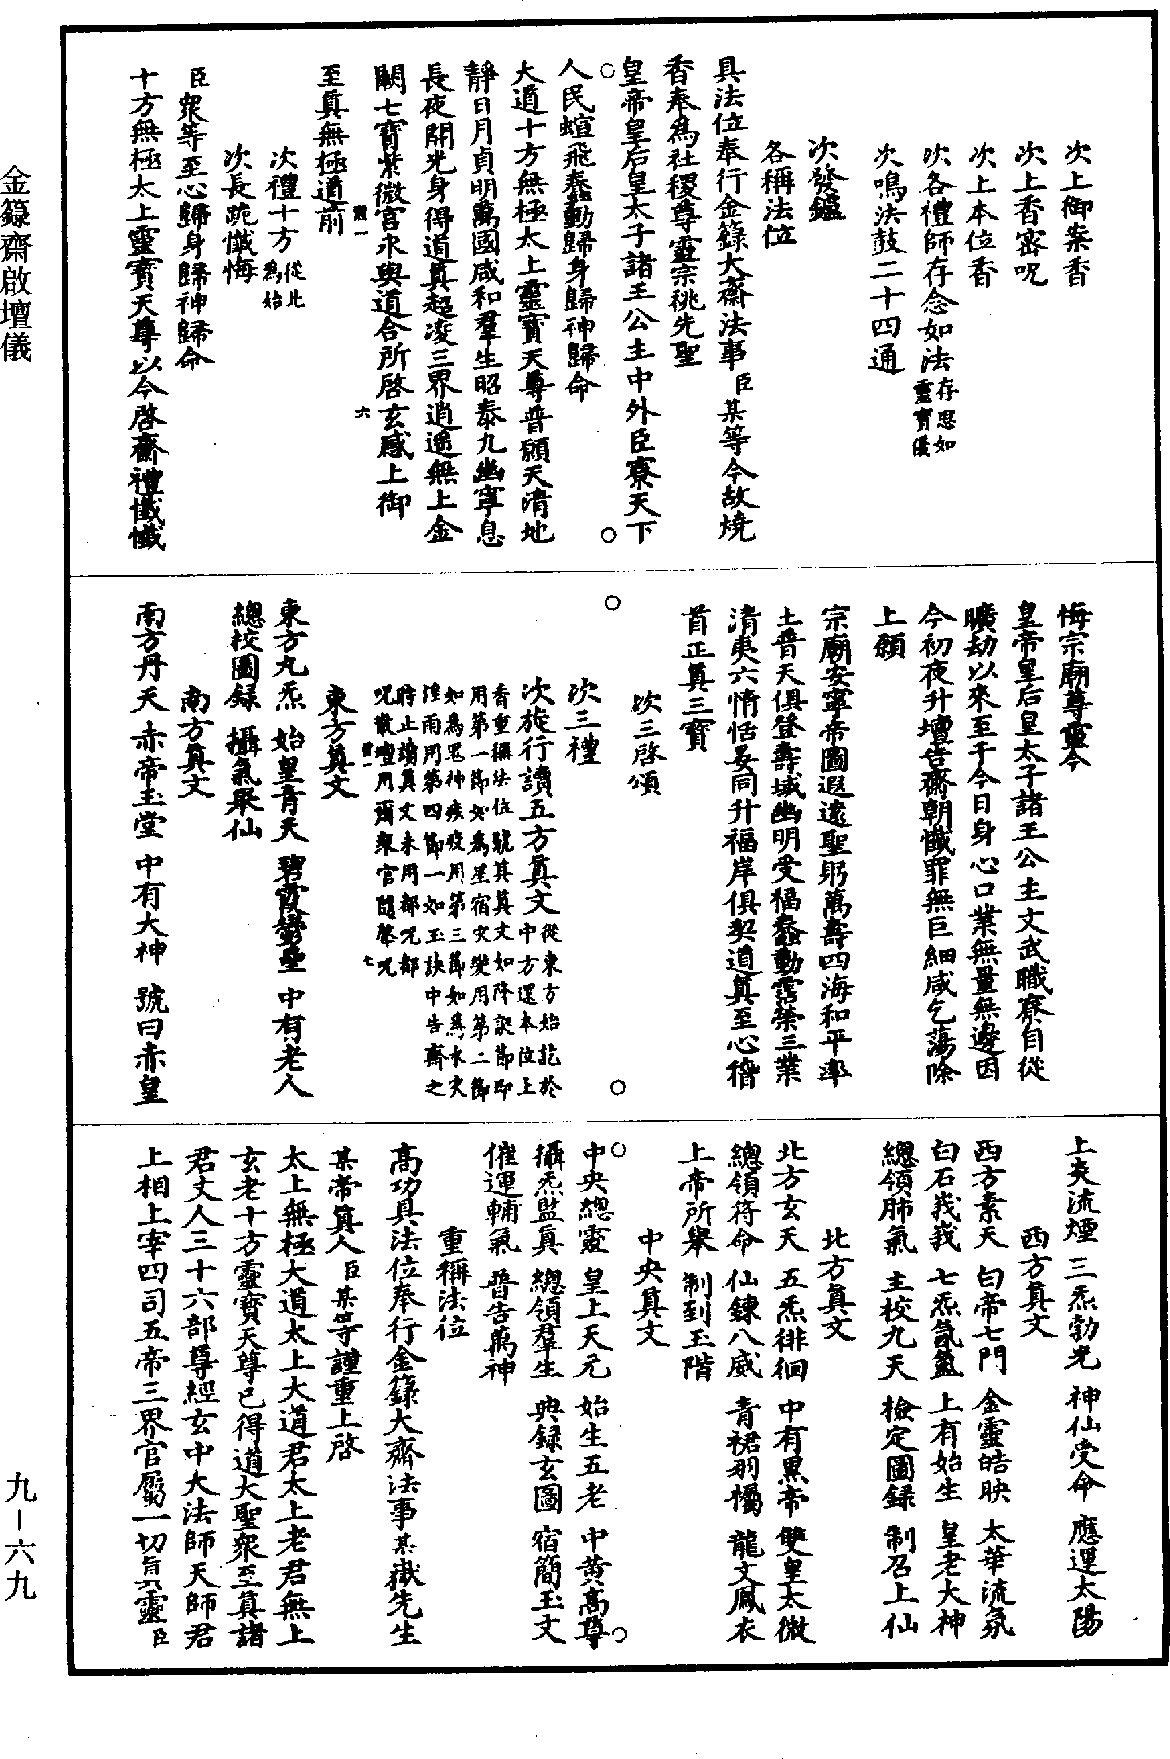 次上御案香
次上香密呪
次上本位香
次各禮師存念如法存思如靈寶儀
次鳴法鼓二十四通
次發鑪
各稱法位
具法位奉行金籙大齋法事臣某等今故燒
香奉爲社稷尊靈宗祧先聖
皇帝皇后皇太子諸王公主中外臣寮天下
人民蝖飛蠢動歸身歸神歸命
大道十方無極太上靈寶天尊普願天清地
靜日月貞明萬國咸和羣生昭泰九幽寧息
長夜開光身得道眞超凌三界逍遥無上金
闕七寶紫微宮永與道合所啓玄感上御
至眞無極道前
次禮十方從北爲始
次長跪懺悔
臣衆等至心歸身歸神歸命
十方無極太上靈寶天尊以今啓齋禮懺懺
悔宗廟尊靈今
皇帝皇后皇太子諸王公主文武職寮自從
曠劫以來至于今日身心口業無量無邊因
今初夜升壇告齋朝懺罪無巨細咸乞蕩除
上願
宗廟安寧帝圖遐遠聖躬萬壽四海和平率
土普天俱登壽域幽明受福蠢動霑榮三業
清夷六情恬晏同升福岸俱契道眞至心稽
首正眞三寶
次三啓頌
次三禮
次旋行讀五方眞文從東方始訖於中方還本位上
香重稱法位號其眞文如降訣節卽用第一節如爲星宿灾變用第二節
如爲思神疾疫用第三節如爲水灾淫雨用第四節一如玉訣中告齋之
時止讀眞文未用都呪都呪散壇用彌衆官隨聲呪
東方眞文
東方九炁 始皇青天 碧霞鬱壘 中有老人
總校圖録 攝氣舉仙
南方眞文
南方丹天 赤帝玉堂 中有大神 號曰赤皇
上炎流煙 三炁勃光 神仙受命 應運太陽
西方眞文
西方素天 白帝七門 金靈皓映 太華流氛
白石峩峩 七炁氤氳 上有始生 皇老大神
總領肺氣 主校九天 檢定圖録 制召上仙
北方眞文
北方玄天 五炁徘徊 中有黑帝 雙皇太微
總領符命 仙鍊八威 青裙羽襠 龍文鳳衣
上帝所舉 制到玉階
中央眞文
中央總靈 皇上天元 始生五老 中黄高尊
攝炁監眞 總領羣生 典録玄圖 宿簡玉文
催運輔氣 普告萬神
重稱法位
高功具法位奉行金籙大齋法事某嶽先生
某帝眞人臣某等謹重上啓
太上無極大道太上大道君太上老君無上
玄老十方靈寶天尊已得道大聖衆至眞諸
君丈人三十六部尊經玄中大法師天師君
上相上宰四司五帝三界官屬一切眞靈臣
金籙齋啟壇儀
九－六九